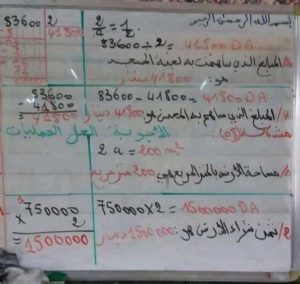 بسم الله الرحمن الرحيم
83600 | 2
41800
2/4 = 1/2
83600 ÷ 2 = 41800 DA
المبلغ الذي ساهمت به لجنة المسجد
هو: 41800 دينار
83600 - 41800 = 41800 DA
83600
- 41800
= 41800
المبلغ الذي ساهم به المحسن هو 41800 دينار
الأجوبة
العمليات
2 a = 200 m²
مساحة الأرض بالمتر المربع هي 200 متر مربع
750000 × 2 = 1500000 DA
750000
× 2
= 1500000
2/ ثمن شراء الأرض هو: 1500000 دينار